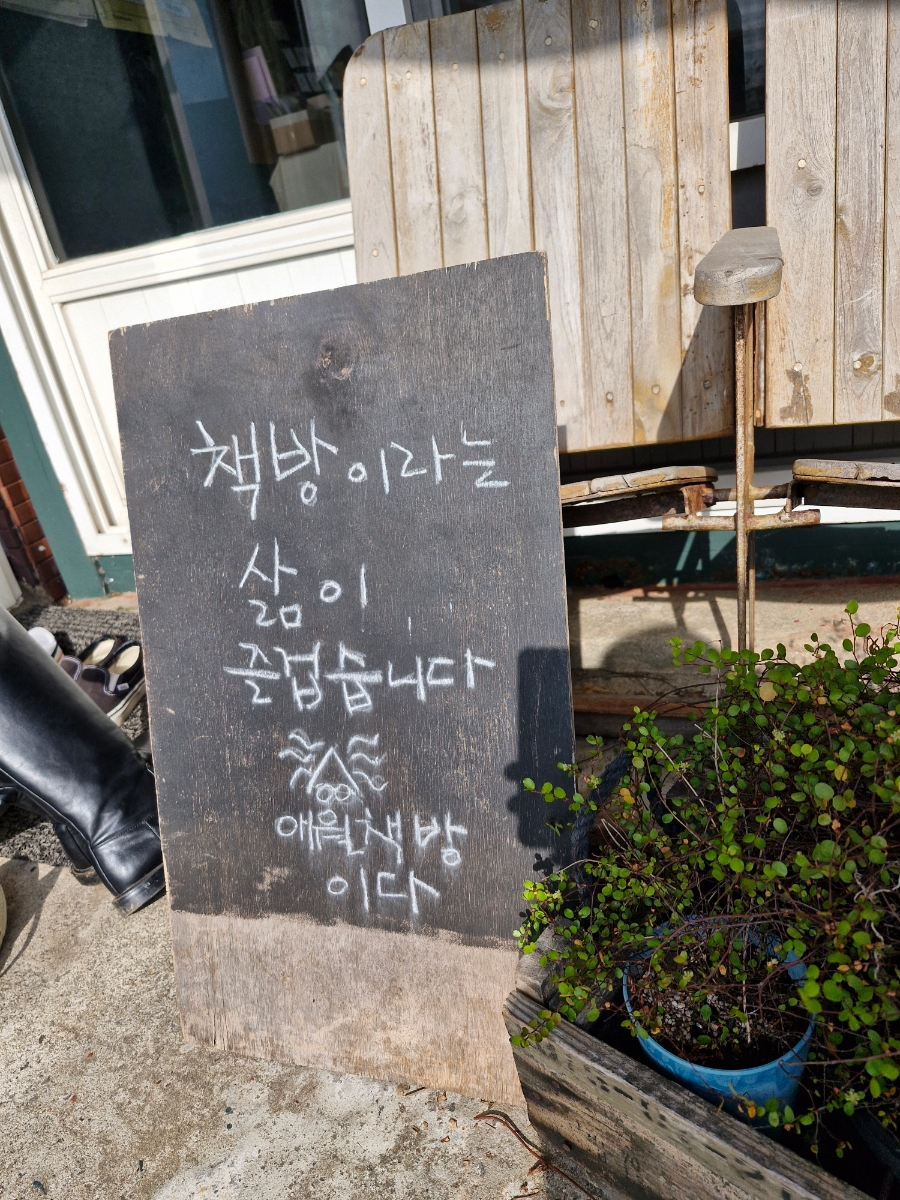 책방이라는
삶이
즐겁습니다
애월책방
이다